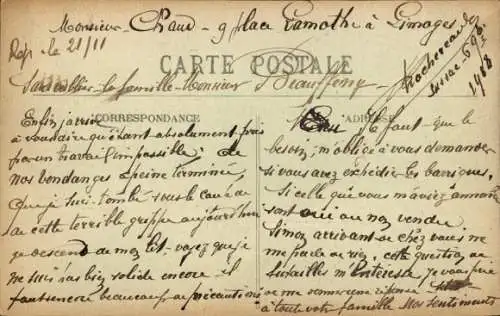 Monsieur Chaud - 9 place Lamothe à Limoges
Rép. le 21/11
CARTE POSTALE
la famille Monsieur
Rochereau
1468
CORRESPONDANCE
ADRESSE
Enfin j'arrive
à vous dire qu'étant absolument pris
par un travail impossible; de
nos vendanges à peine terminé,
que je suis tombé sous le coup de
cette terrible grippe aujourd'hui
je descend de mon lit - voyez que je
ne suis pas bien solide encore il
faut encore beaucoup de précautions
Il faut que le
besoin m'oblige à vous demander
si vous avez expédié les barriques,
si celle que vous m'aviez annoncé
sont oui ou non vendu
Sinon arrivant de chez vous ne
me parle de rien, cette question, de
futailles m'intéresse je vous prie
de me donner une réponse
à toute votre famille nos sentiments